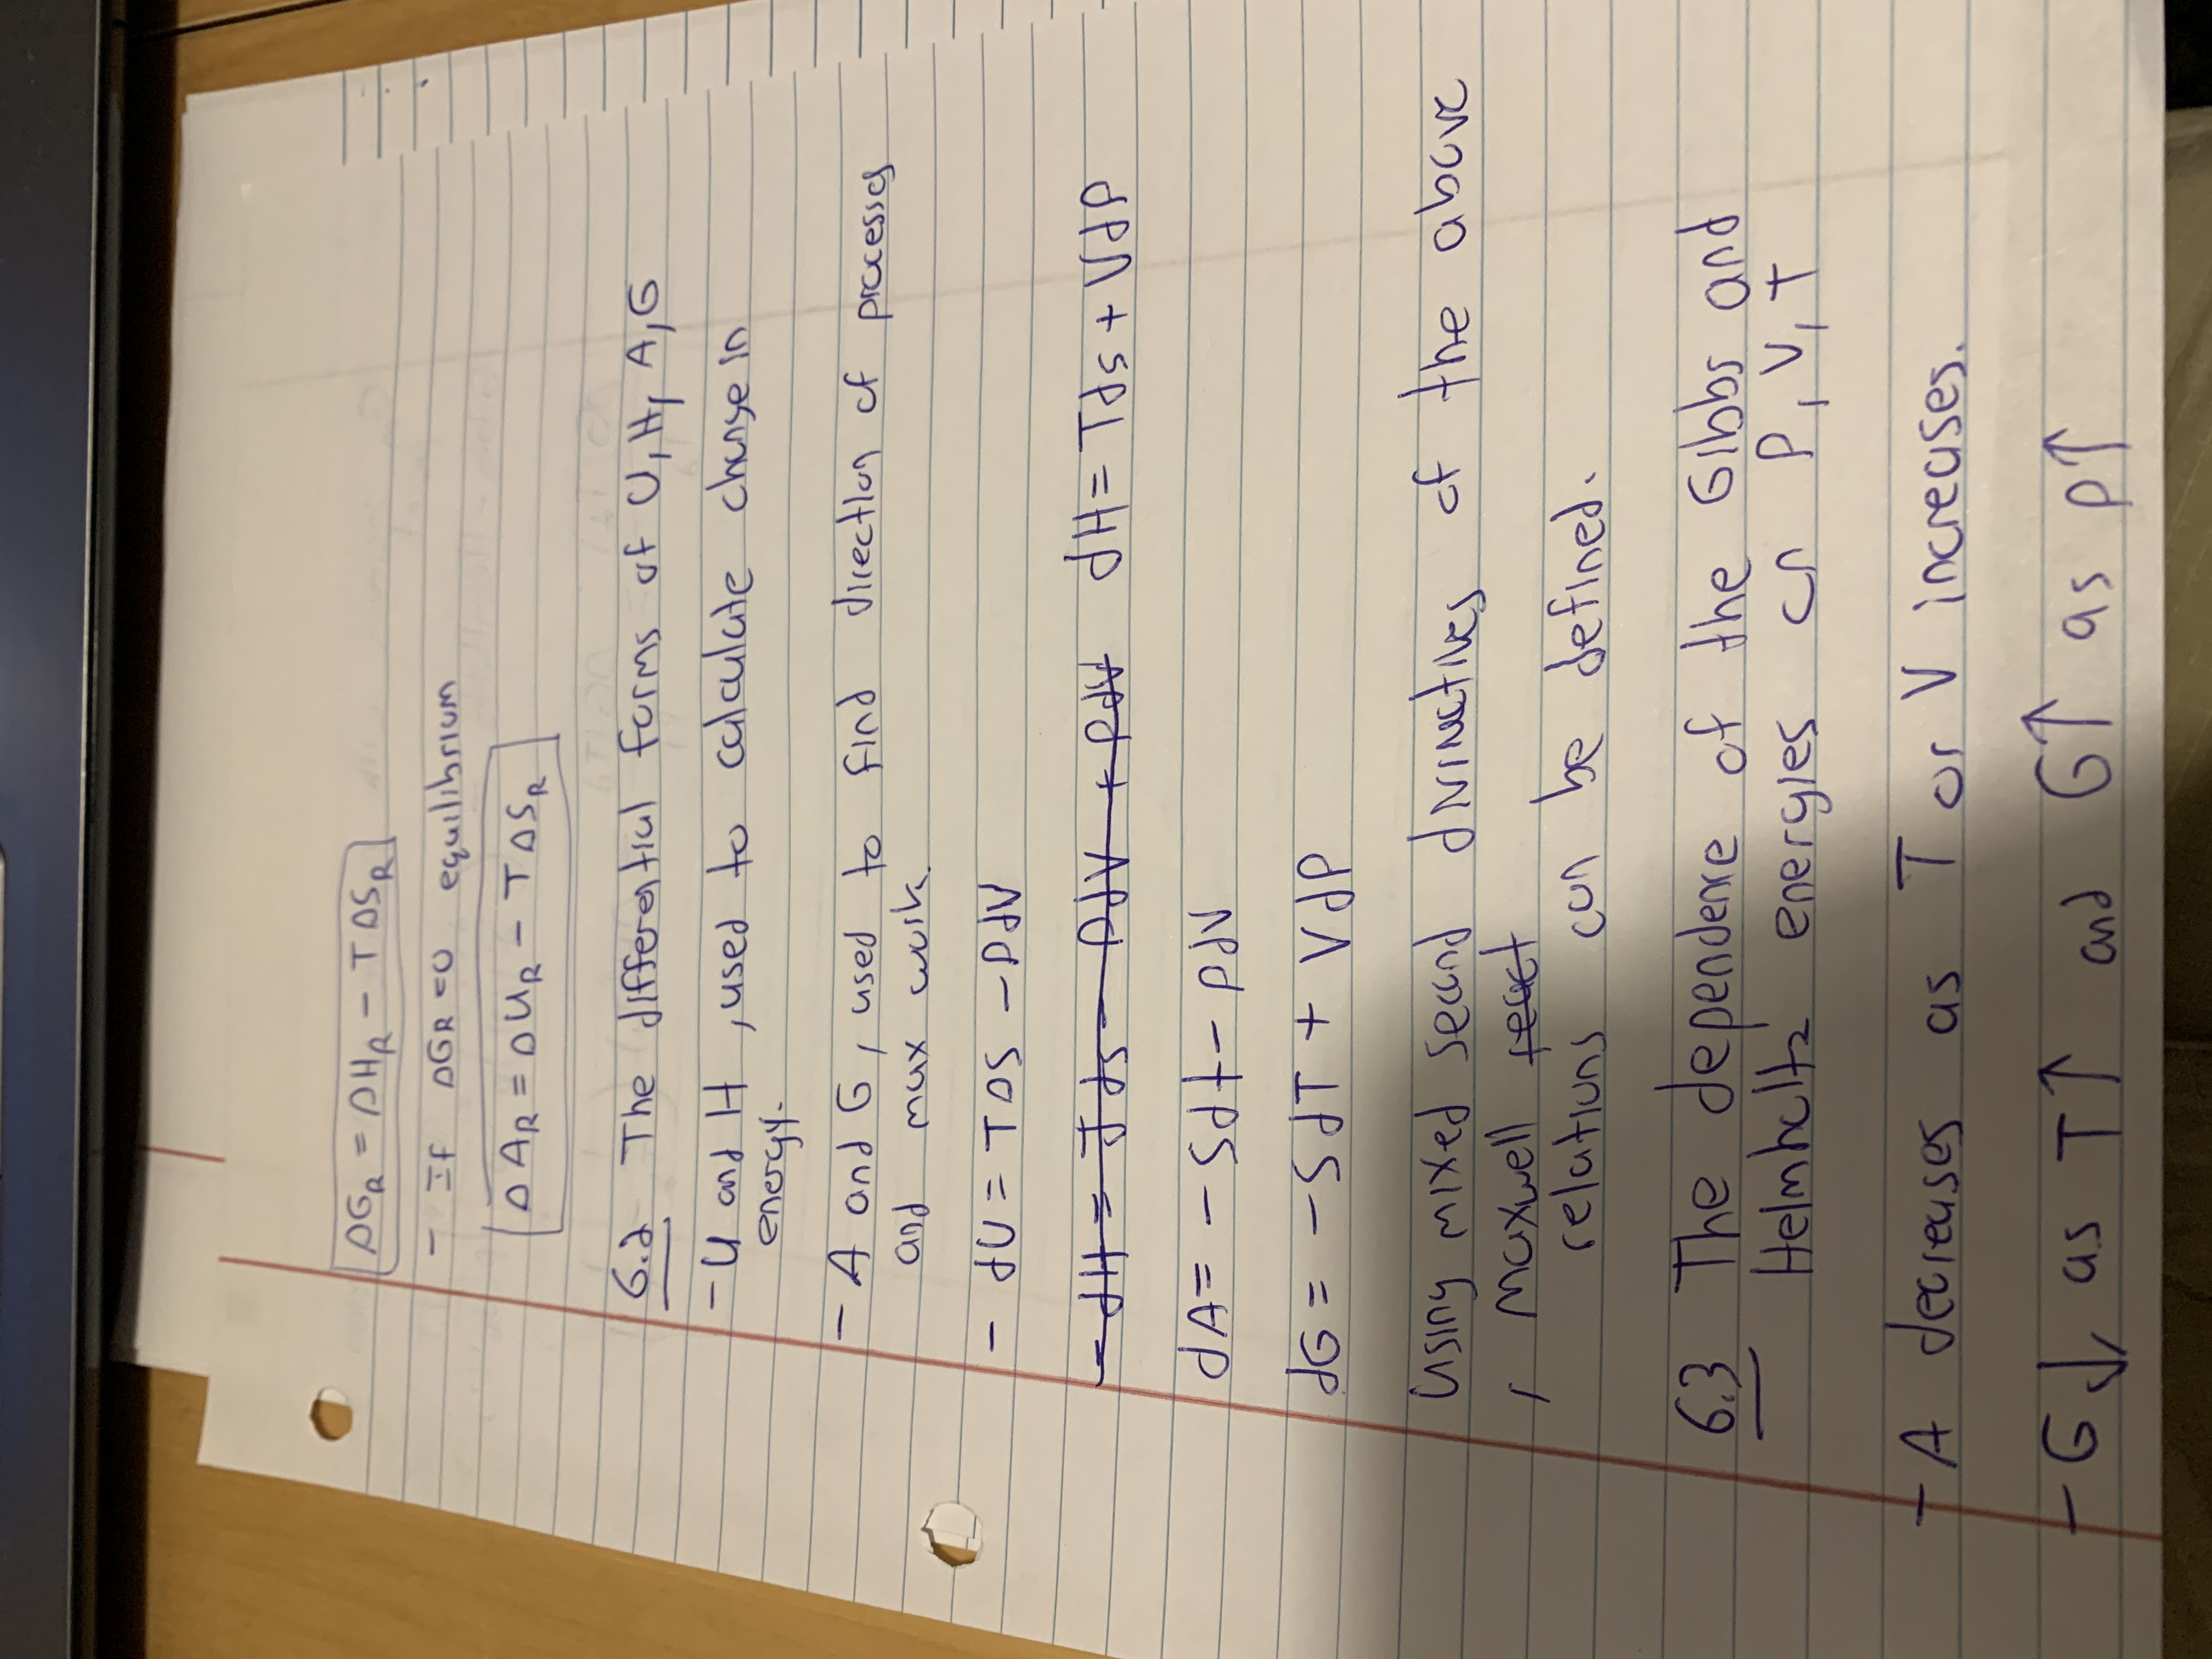 ΔG_R = ΔH_R - TΔS_R
- If ΔG_R = 0 equilibrium
ΔA_R = ΔU_R - TΔS_R
6.2 The differential forms of U, H, A, G
- U and H, used to calculate change in
energy.
- A and G, used to find direction of processes
and max work.
- dU = TΔS - PdV
- dH = Tds - PdV + PdV dH = Tds + VdP
dA = -Sdt - PdV
dG = -SdT + VdP
Using mixed second of the above
, Maxwell react
relations can be defined.
6.3 The dependence of the Gibbs and
Helmholtz energies on P, V, T
- A decreases as T or V increases.
- G↓ as T↑ and G↑ as P↑